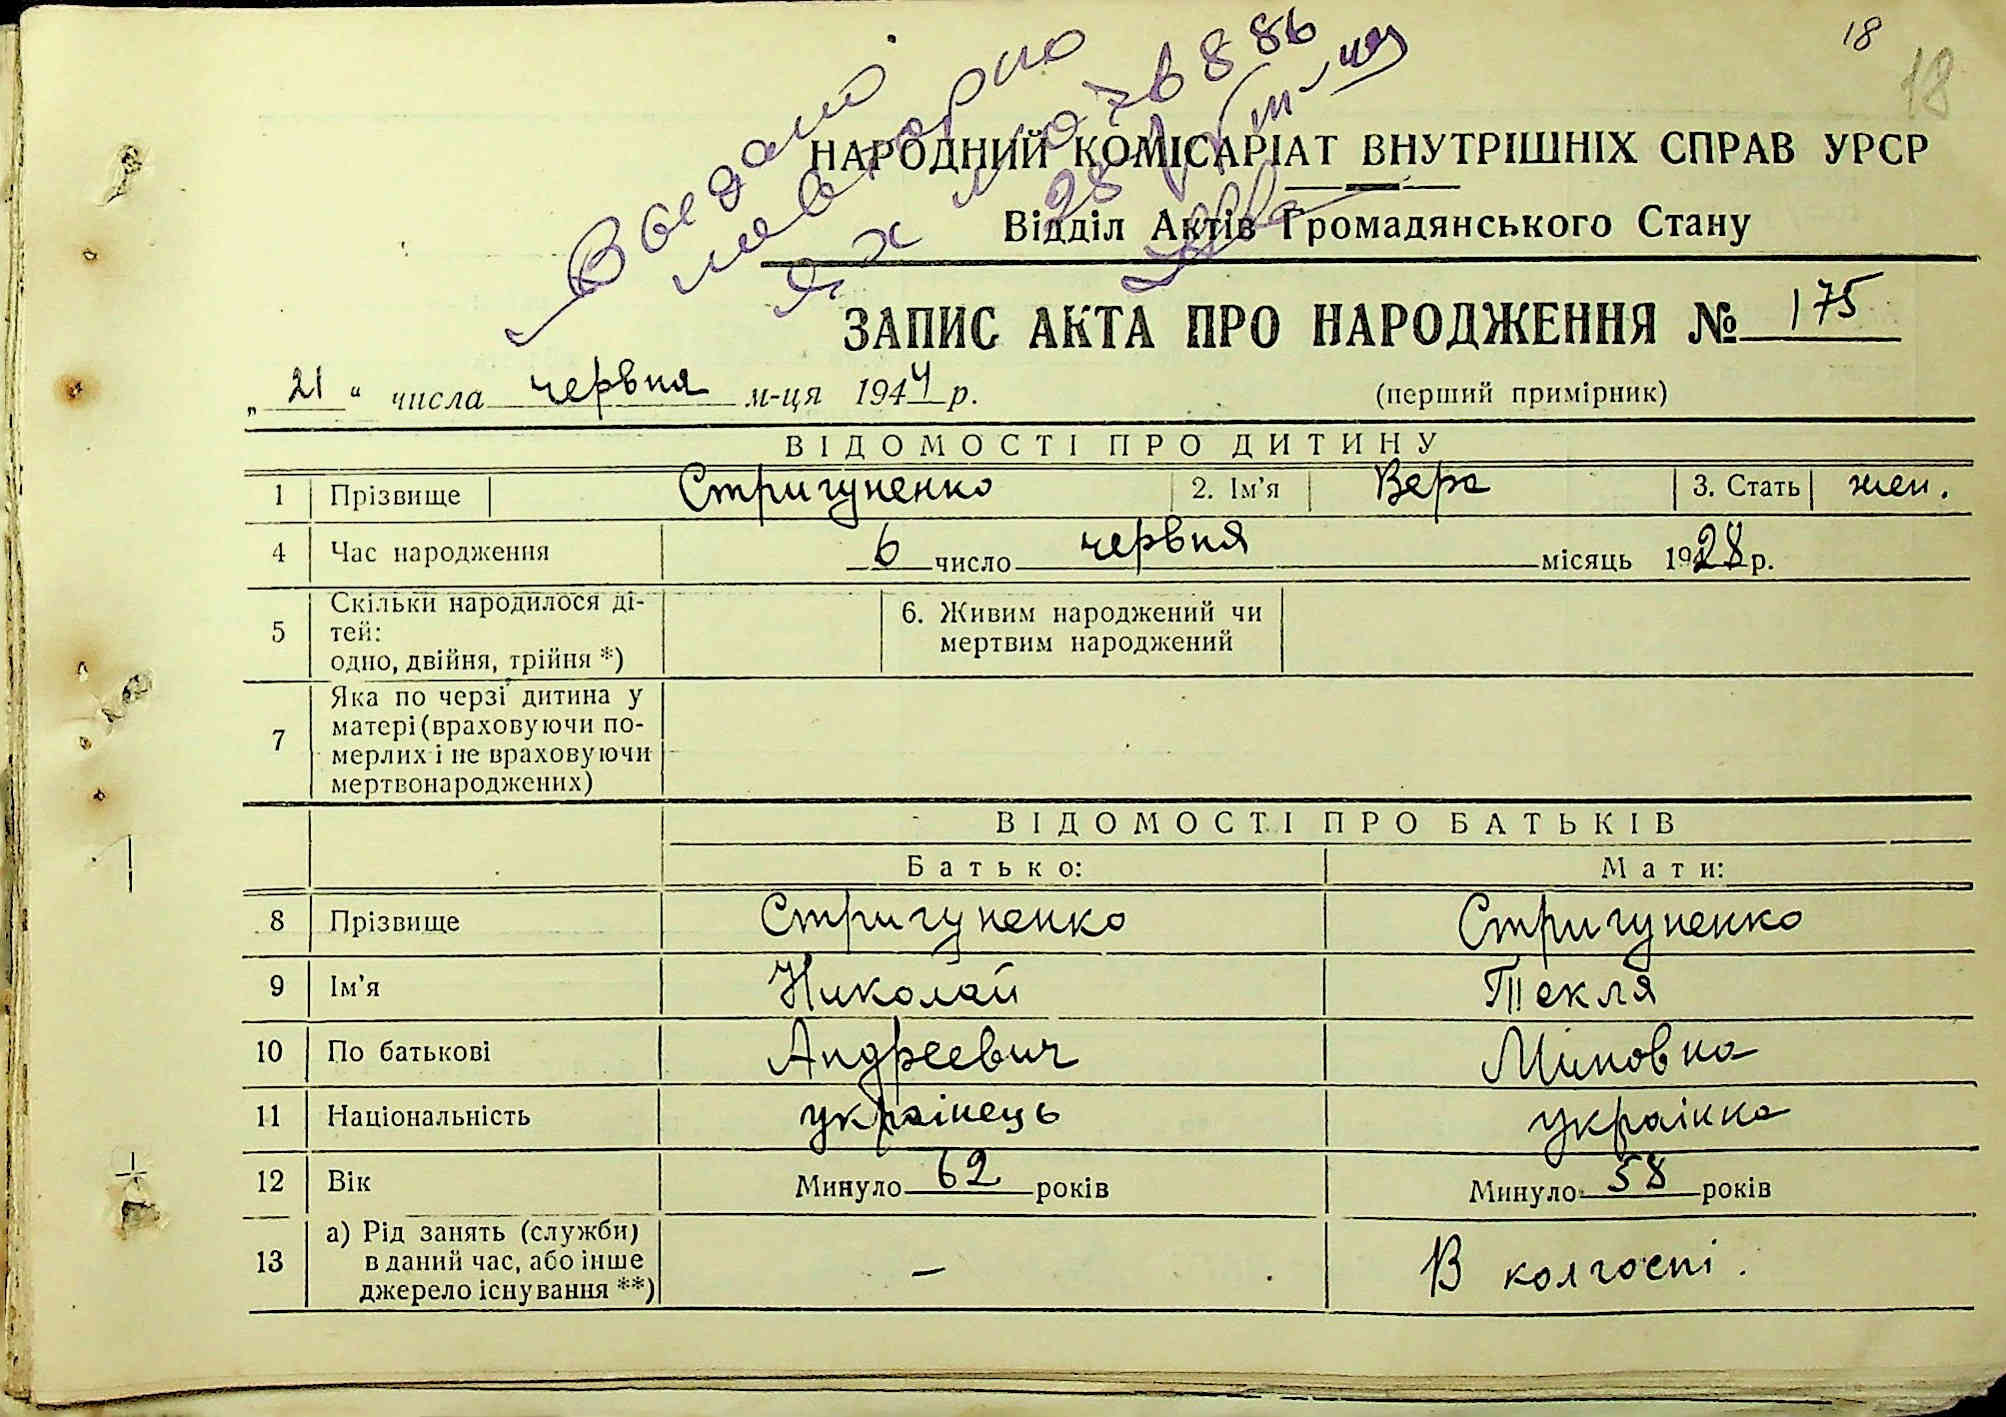 18
18
Выдано
повторно
НАРОДНИЙ КОМІСАРІАТ ВНУТРІШНІХ СПРАВ УРСР
Відділ Актів Громадянського Стану
ЗАПИС АКТА ПРО НАРОДЖЕННЯ № 175
„ 21 “ числа червня м-ця 1944 р. (перший примірник)
ВІДОМОСТІ ПРО ДИТИНУ
1 Прізвище Стригуненко 2. Ім'я Вера 3. Стать жен.
4 Час народження 6 число червня місяць 1928 р.
5 Скільки народилося ді-
тей:
одно, двійня, трійня *)
6. Живим народжений чи
мертвим народжений
7 Яка по черзі дитина у
матері (враховуючи по-
мерлих і не враховуючи
мертвонароджених)
ВІДОМОСТІ ПРО БАТЬКІВ
Батько: Мати:
8 Прізвище Стригуненко Стригуненко
9 Ім'я Николай Текля
10 По батькові Андреевич Миновна
11 Національність українець українка
12 Вік Минуло 62 років Минуло 58 років
13 а) Рід занять (служби)
в даний час, або інше
джерело існування **)
— В колгоспі.